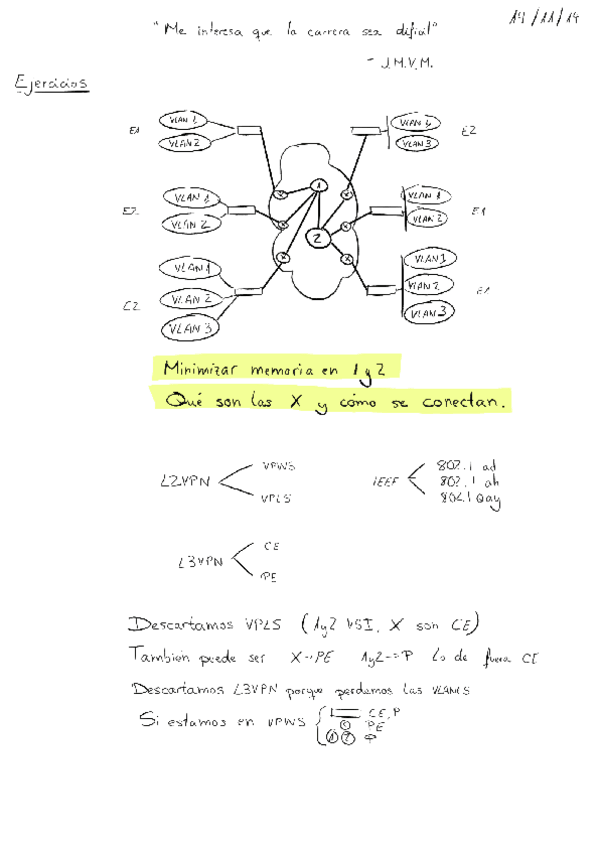 19/11/14
"Me interesa que la carrera sea dificil"
- J.M.V.M.
Ejercicios
E1 VLAN 1 VLAN 4 E2
VLAN 2 VLAN 3
1
E2 VLAN 1 X X VLAN 1 E1
VLAN 2 X X VLAN 2
2
VLAN 1 X X VLAN 1
C2 VLAN 2 VLAN 2 E1
VLAN 3 VLAN 3
Minimizar memoria en 1 y 2
Qué son las X y cómo se conectan.
L2VPN VPWS VPLS
IEEF 802.1 ad 802.1 ah 802.1 Qay
L3VPN CE PE
Descartamos VPLS (1y2 VSI, X son CE)
Tambien puede ser X→PE 1y2→P lo de fuera CE
Descartamos L3VPN porque perdemos las VLANS
Si estamos en VPWS CE, P
X PE
1 2 P